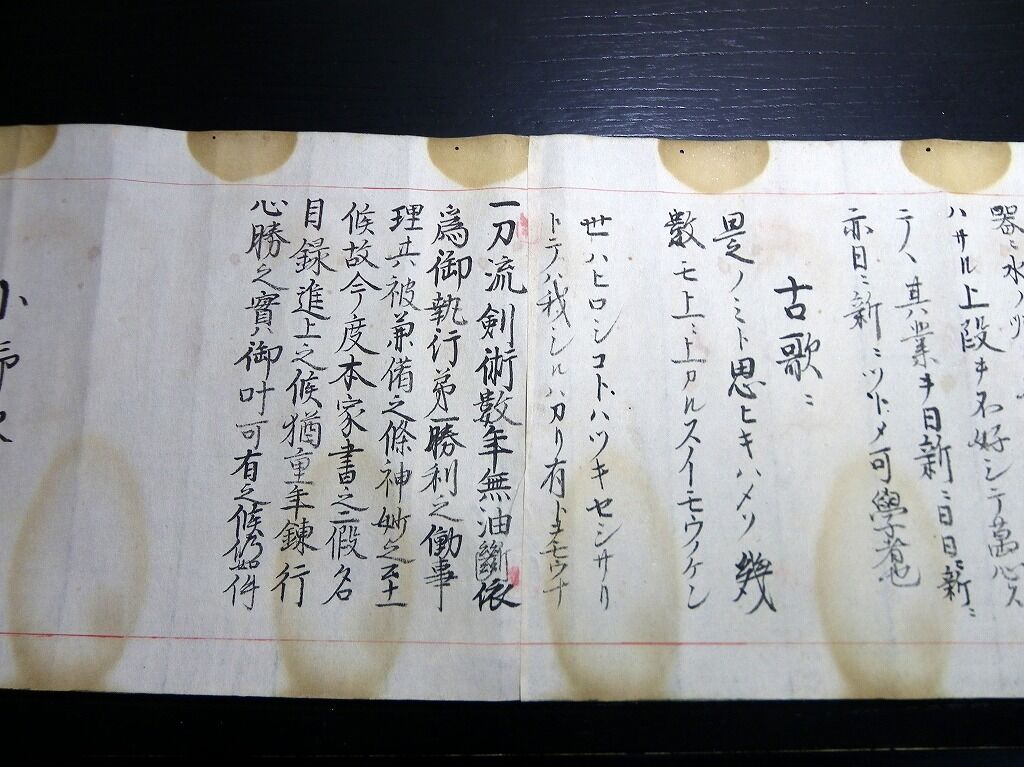 器ニ水ノツ
ハサル上段ヲ不好シテ萬心ス
テハ其業ヲ日新ニ日日ニ新ニ
亦日ニ新ニツトメ可學者也
古歌ニ
是ノミト思ヒキハメソ幾
数モ上ニ上アルスイモウノケン
世ハヒロシコトハツキセシサリ
トテハ我シルハカリ有トオモウナ
一刀流剣術数年無油斷依
爲御執行第一勝利之働事
理共被兼備之條神妙之至ニ
候故今度本家書之二假名
目録進上之候猶重年錬行
必勝之實ハ御叶可有之候仍如件
小